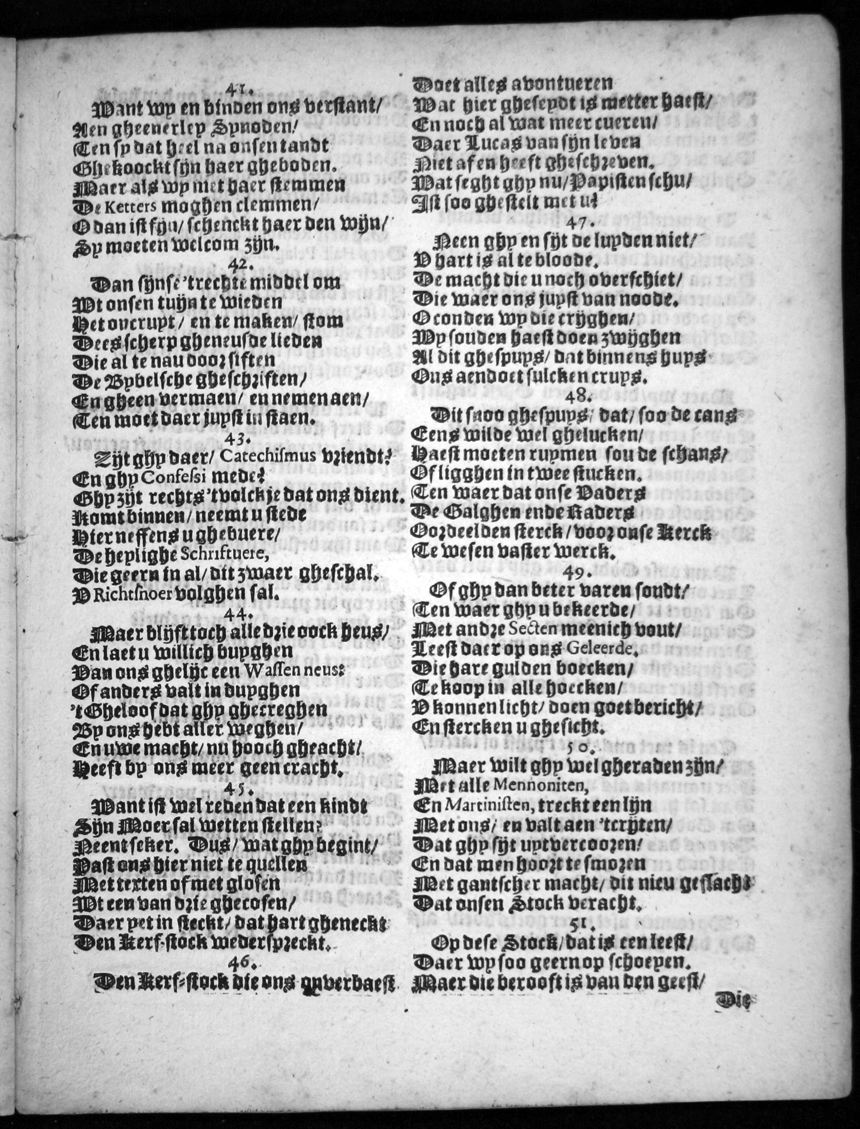 41.
Want wy en binden ons verstant/
Aen gheenerley Synoden/
Ten sy dat heel na onsen tandt
Ghekoockt sijn haer gheboden.
Maer als wy met haer stemmen
De Ketters moghen clemmen/
O dan ist fyn/ schenckt haer den wijn/
Sy moeten welcom zijn.
42.
Dan sijnse 'trechte middel om
Wt onsen tuijn te wieden
Het oncruyt/ en te maken/ stom
Dees scherp gheneusde lieden
Die al te nau door siften
De Bybelsche gheschriften/
En gheen vermaen/ en nemen aen/
Ten moet daer juyst in staen.
43.
Zijt ghy daer/ Catechiſmus vriendt?
En ghy Confeſsi mede?
Ghy zijt rechts 'tvolckje dat ons dient.
Komt binnen/ neemt u stede
Hier neffens u ghebuere/
De heylighe Schriftuere,
Die geern in al/ dit zwaer gheschal.
V Richtſnoer volghen sal.
44.
Maer blijft toch alle drie oock heus/
En laet u willich buyghen
Van ons ghelijc een Waſſen neus:
Of anders valt in duyghen
't Gheloof dat ghy ghecreghen
By ons hebt aller weghen/
En uwe macht/ nu hooch gheacht/
Heeft by ons meer geen cracht.
45.
Want ist wel reden dat een kindt
Sijn Moer sal wetten stellen?
Neent seker. Dus/ wat ghy begint/
Past ons hier niet te quellen
Met texten of met glosen
Wt een van drie ghecosen/
Daer yet in steckt/ dat hart gheneckt
Den Kerf-stock wederspreckt.
46.
Den Kerf-stock die ons onverbaest
Doet alles avontueren
Wat hier gheseydt is metter haest/
En noch al wat meer cueren/
Daer Lucas van sijn leven
Niet af en heeft gheschreven.
Wat seght ghy nu/ Papisten schu/
Ist soo ghestelt met u?
47.
Neen ghy en sijt de luyden niet/
V hart is al te bloode.
De macht die u noch overschiet/
Die waer ons juyst van noode.
O conden wy die crijghen/
Wy souden haest doen zwijghen
Al dit ghespuys/ dat binnens huys
Ons aendoet sulcken cruys.
48.
Dit snoo ghespuys/ dat/ soo de cans
Eens wilde wel ghelucken/
Haest moeten ruymen sou de schans/
Of ligghen in twee stucken.
Ten waer dat onse Vaders
De Galghen ende Raders
Oordeelden sterck/ voor onse Kerck
Te wesen vaster werck.
49.
Of ghy dan beter varen soudt/
Ten waer ghy u bekeerde/
Met andre Secten meenich vout/
Leest daer op ons Geleerde.
Die hare gulden boecken/
Te koop in alle hoecken/
V konnen licht/ doen goet bericht/
En stercken u ghesicht.
50.
Maer wilt ghy wel gheraden zijn/
Met alle Mennoniten,
En Martiniſten, treckt een lijn
Met ons/ en valt aen 'tcryten/
Dat ghy sijt uytvercooren/
En dat men hoort te smoren
Met gantscher macht/ dit nieu geslacht
Dat onsen Stock veracht.
51.
Op dese Stock/ dat is een leest/
Daer wy soo geern op schoeyen.
Maer die berooft is van den geest/
Die